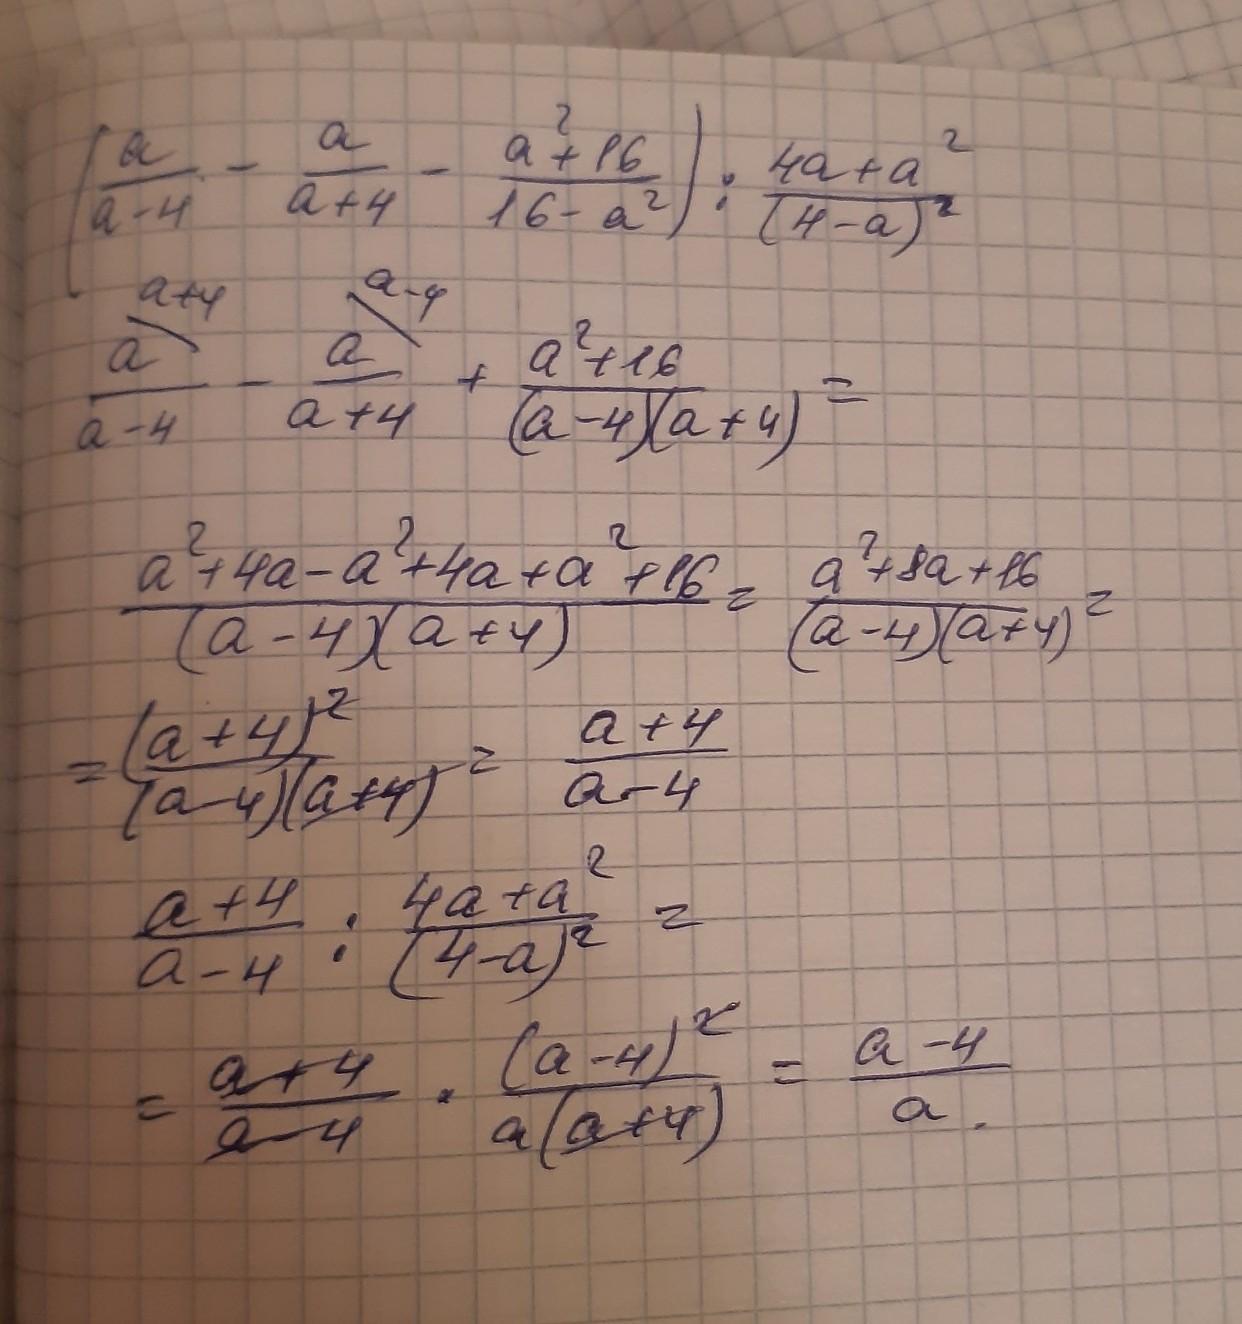 (a/(a-4) - a/(a+4) - (a²+16)/(16-a²)) : (4a+a²)/(4-a)²
a+4 a-4
a/(a-4) - a/(a+4) + (a²+16)/((a-4)(a+4)) =
(a²+4a-a²+4a+a²+16)/((a-4)(a+4)) = (a²+8a+16)/((a-4)(a+4)) =
= (a+4)²/((a-4)(a+4)) = (a+4)/(a-4)
(a+4)/(a-4) : (4a+a²)/(4-a)² =
= (a+4)/(a-4) · (a-4)²/(a(a+4)) = (a-4)/a.